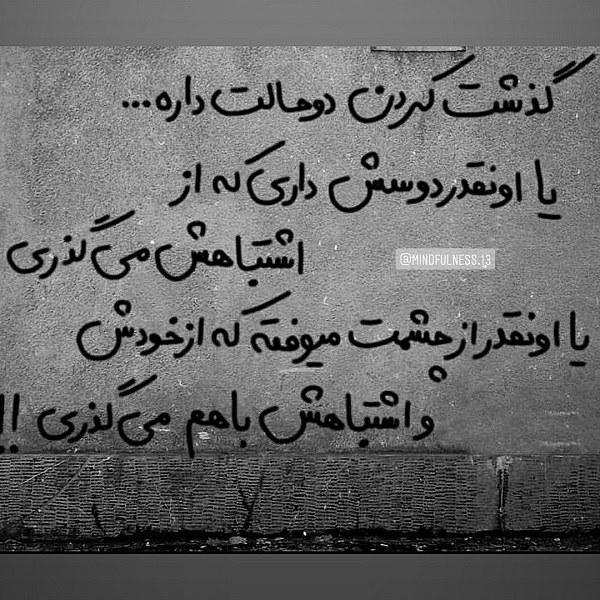 گذشت کردن دو حالت داره...
یا اونقدر دوسش داری که از
اشتباهش می گذری
@MINDFULNESS.13
یا اونقدر از چشمت میوفته که از خودش
و اشتباهش باهم می گذری !!